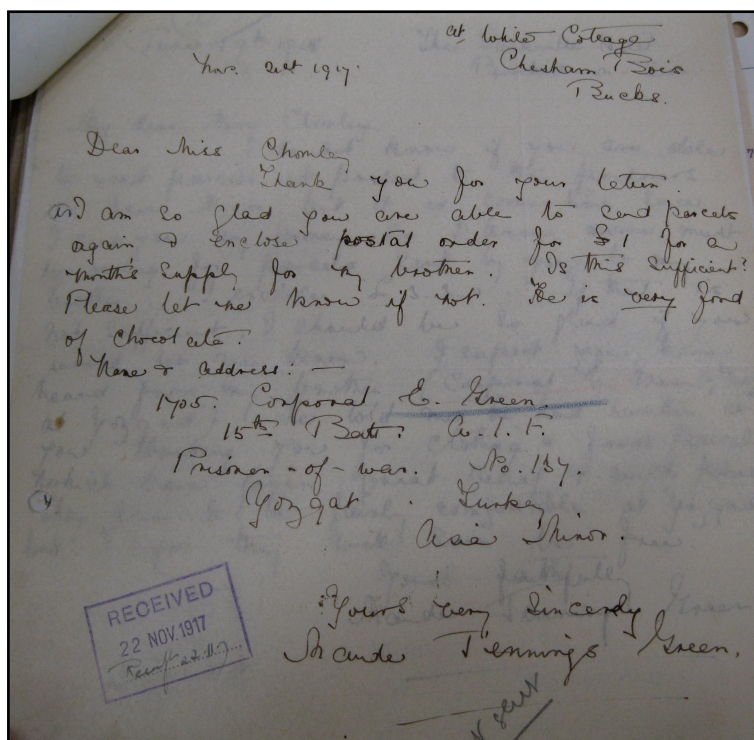 at White Cottage
Nov. 21st 1917.
Chesham Bois
Bucks.
Dear Miss Chomley
Thank you for your letter.
I am so glad you are able to send parcels
again & enclose postal order for £1 for a
month's supply for my brother. Is this sufficient?
Please let me know if not. He is very fond
of chocolate.
Name & address: —
1705. Corporal E. Green.
15th Batt. A. I. F.
Prisoner-of-war. No. 137.
Yozgat. Turkey
Asia Minor.
Yours very sincerely
Maude Jennings Green.
RECEIVED
22 NOV. 1917
sent